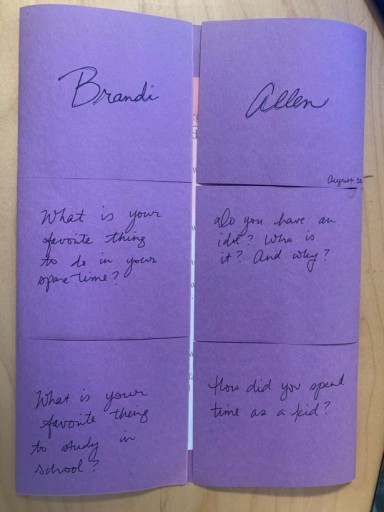 Brandi
Allen
August 22
What is your
favorite thing
to do in your
spare time?
do you have an
idol? Who is
it? And why?
What is your
favorite thing
to study in
school?
How did you spend
time as a kid?